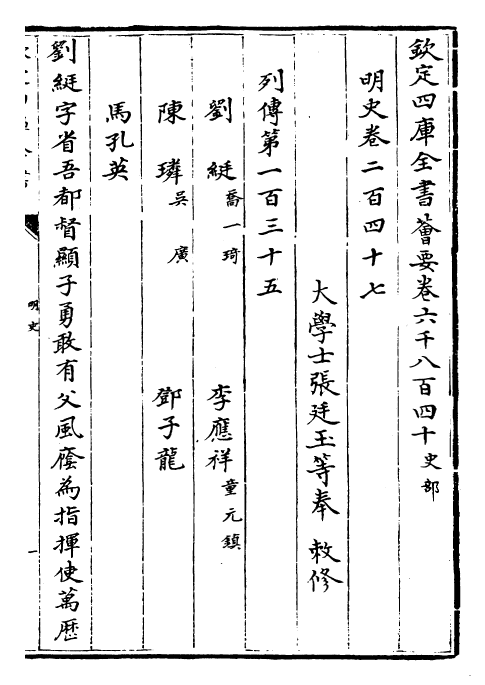 欽定四庫全書薈要卷六千八百四十史部
明史卷二百四十七
大學士張廷玉等奉 敕修
列傳第一百三十五
劉綎喬一琦 李應祥童元鎮
陳璘吳廣 鄧子龍
馬孔英
劉綎字省吾都督顯子勇敢有父風廕為指揮使萬歷
明史
一